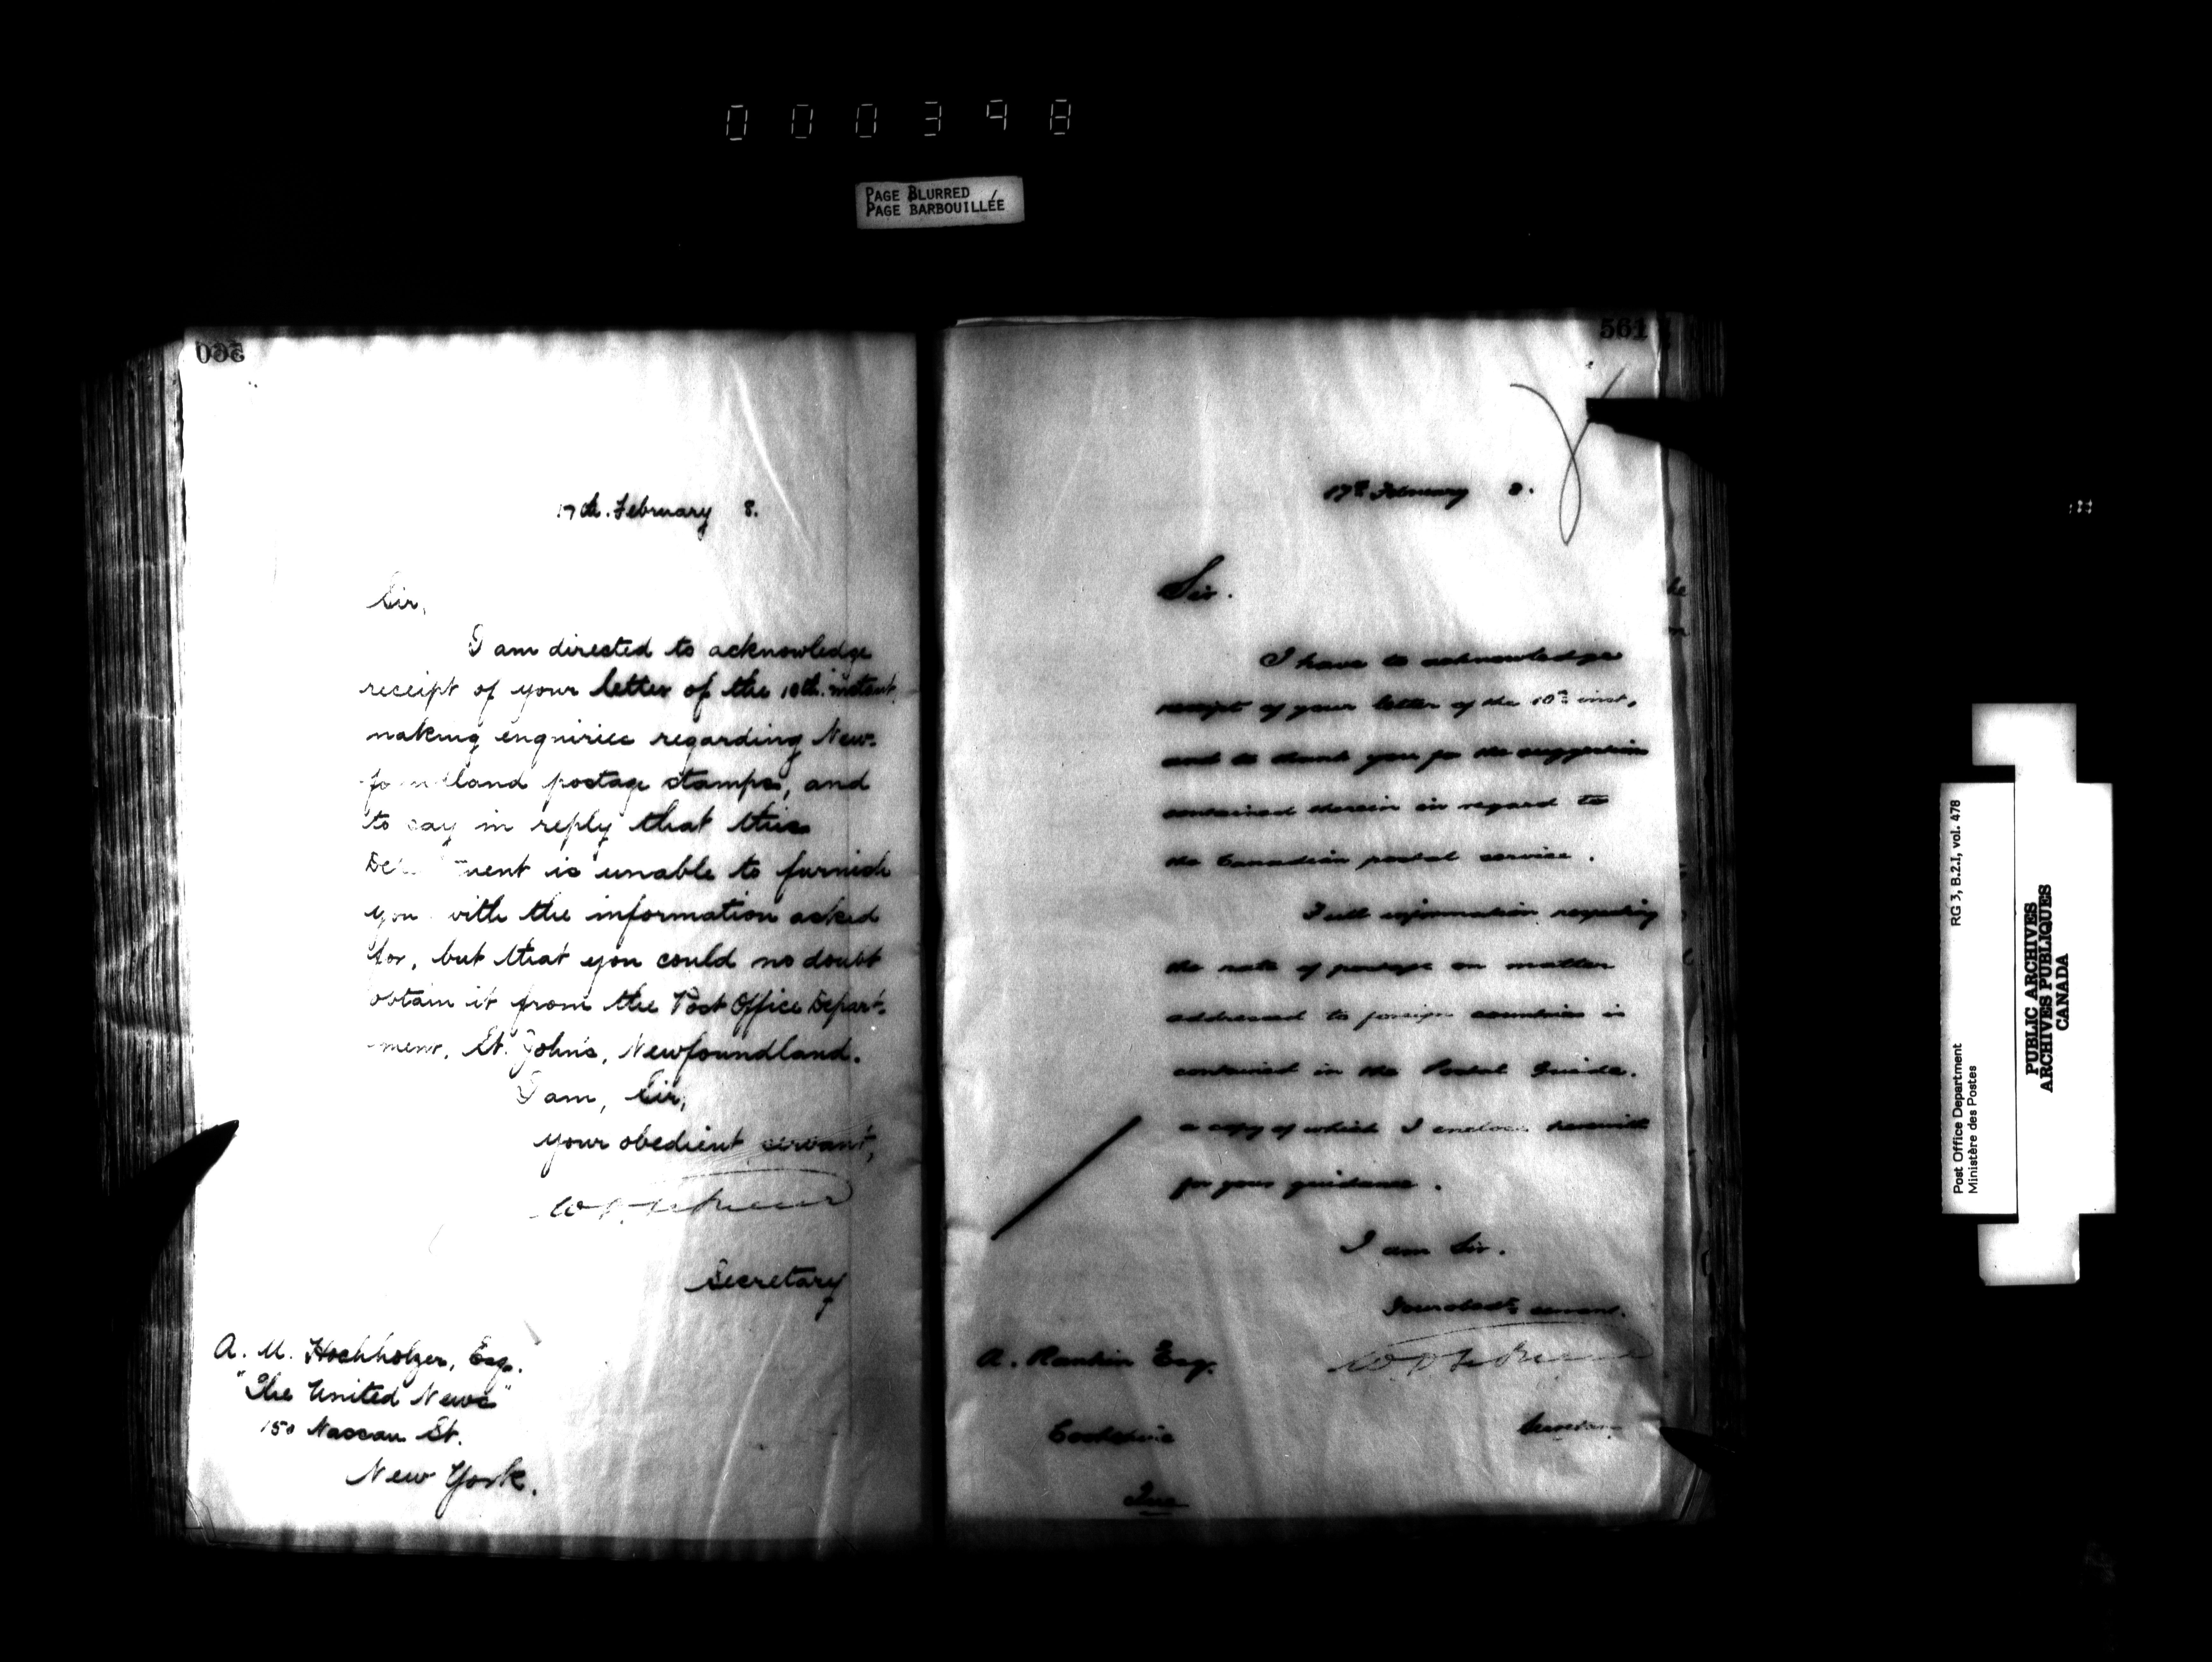 000398
PAGE BLURRED
PAGE BARBOUILLÉE
560
17th. February 8.
Sir,
I am directed to acknowledge
receipt of your letter of the 10th. instant
making enquiries regarding New-
foundland postage stamps, and
to say in reply that this
Department is unable to furnish
you with the information asked
for, but that you could no doubt
obtain it from the Post Office Depart-
ment, St. John's, Newfoundland.
I am, Sir,
your obedient servant,
Secretary
A. M. Hochholzer, Esq.
"The United News"
150 Nassau St.
New York.
561
17th February 8.
Sir.
I have to acknowledge
receipt of your letter of the 10th inst.
and to thank you for the suggestion
contained therein in regard to
the Canadian postal service.
Full information respecting
the rate of postage on matter
addressed to foreign countries is
contained in the Postal Guide.
a copy of which I enclose herewith
for your guidance.
I am Sir.
Your obedt. servant.
A. Rankin Esq.
Secretary
Cookshire
Que
Post Office Department
Ministère des Postes
RG 3, B.2.I, vol. 478
PUBLIC ARCHIVES
ARCHIVES PUBLIQUES
CANADA